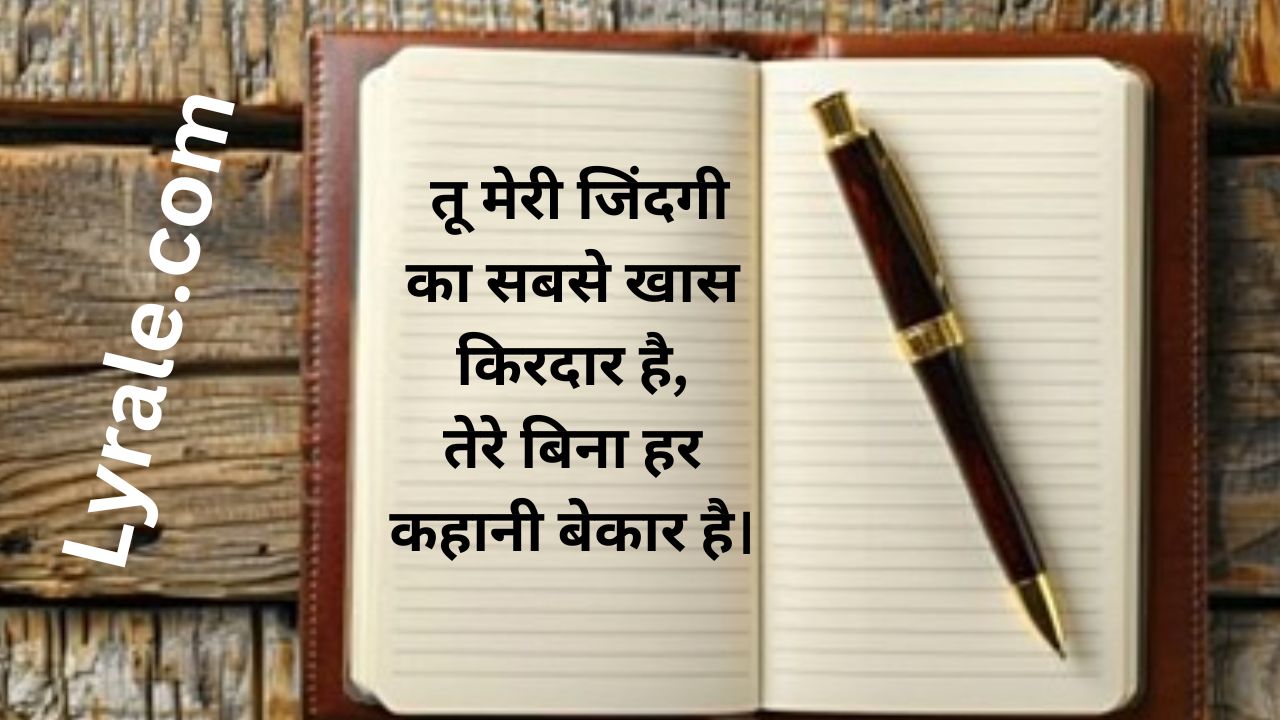 Lyrale.com
तू मेरी जिंदगी
का सबसे खास
किरदार है,
तेरे बिना हर
कहानी बेकार है।